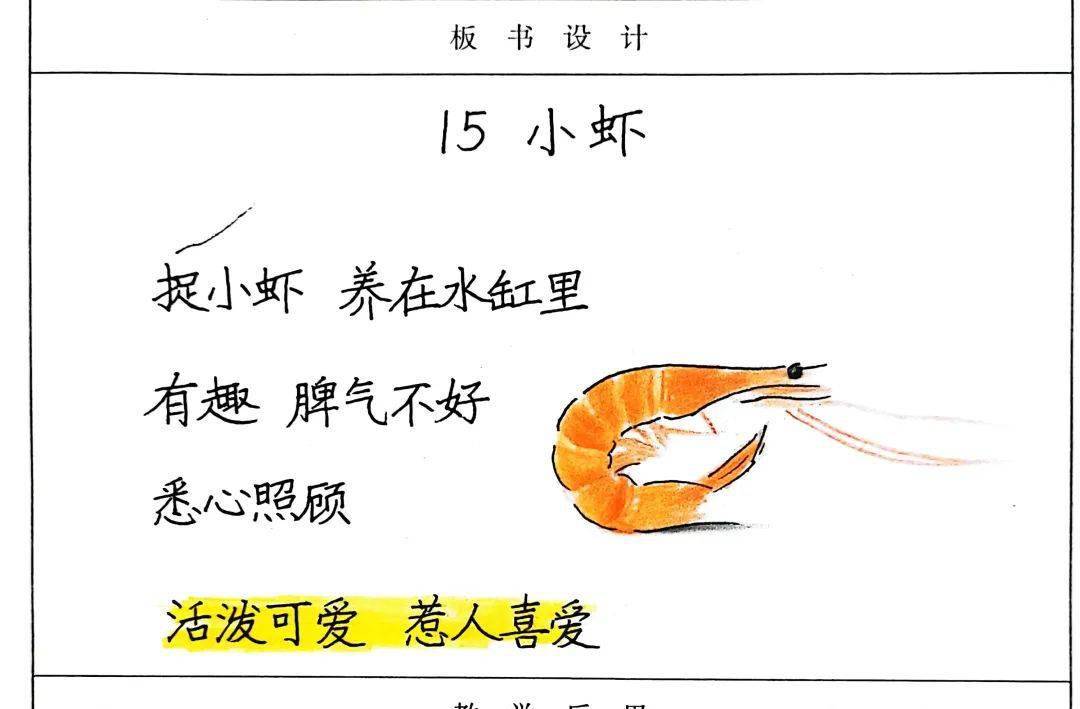 板书设计
15 小虾
捉小虾 养在水缸里
有趣 脾气不好
悉心照顾
活泼可爱 惹人喜爱